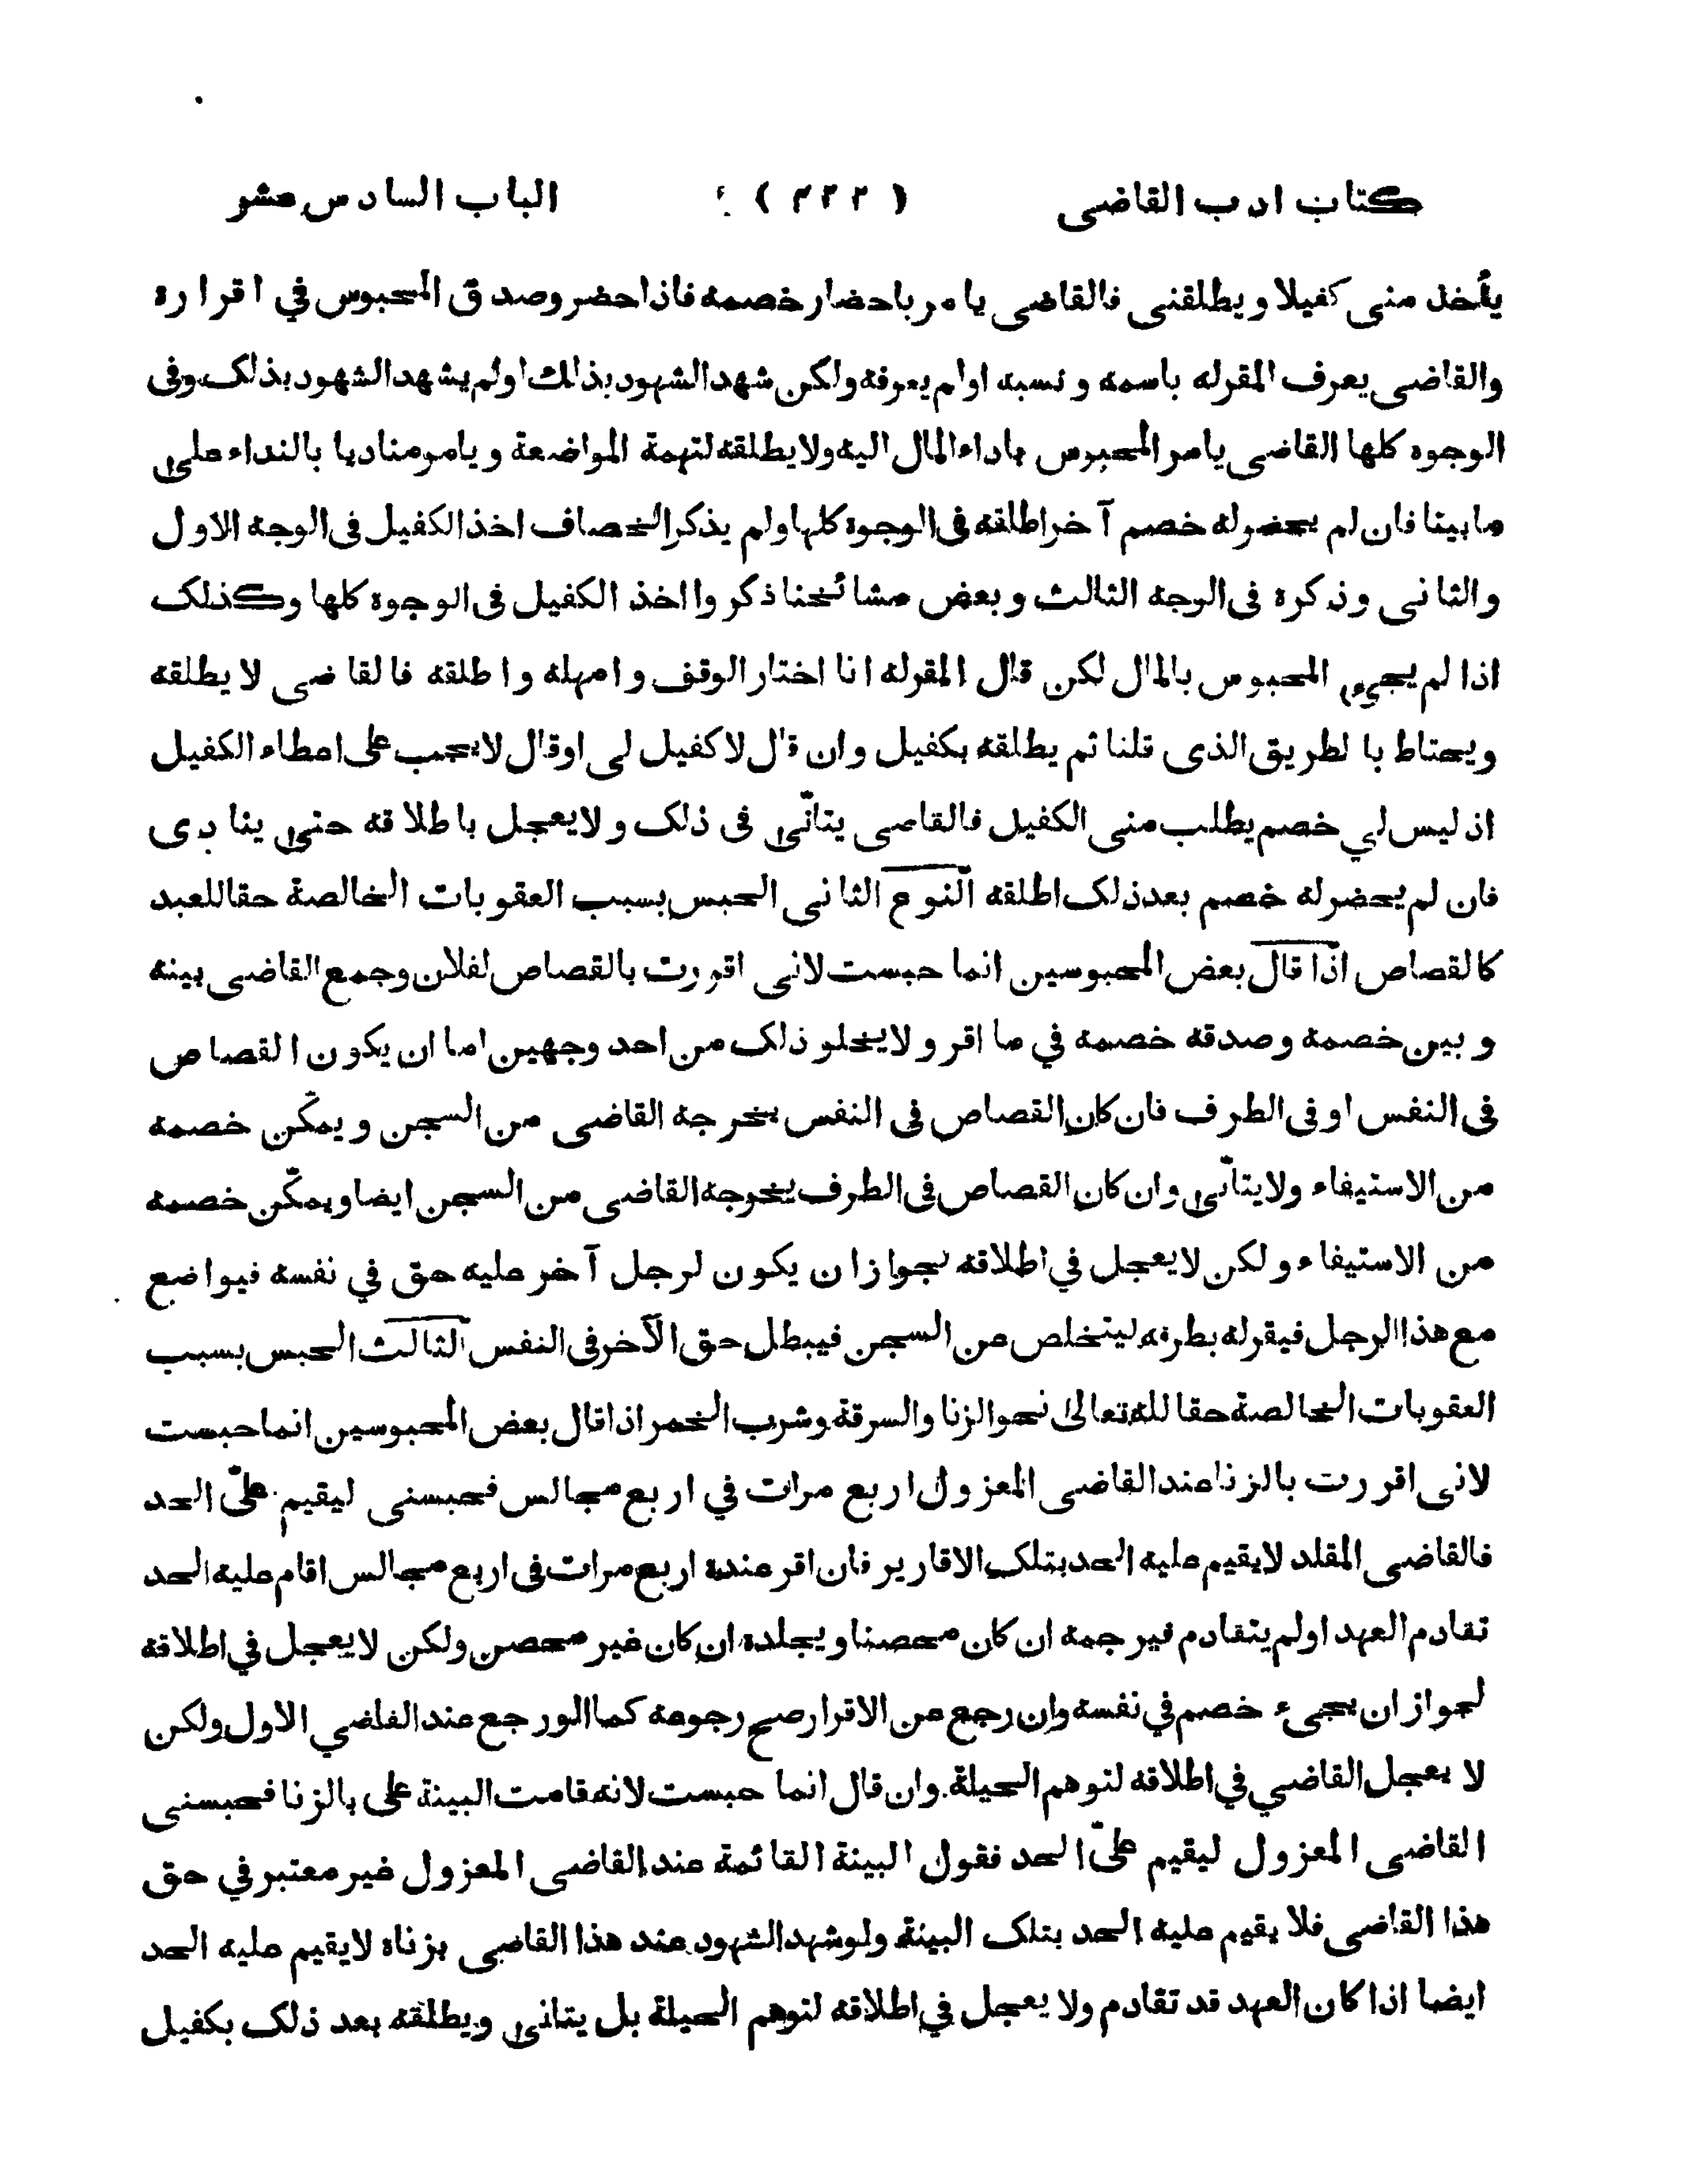 كتاب ادب القاضى ( ٢٣٢ ) الباب السادس عشر
يأخذ منى كفيلا ويطلقنى فالقاضى يامر باحضار خصمه فاذا حضر وصدق المحبوس في اقراره
والقاضى يعرف المقرله باسمه ونسبه اولم يعرفه ولكن شهد الشهود بذلك اولم يشهد الشهود بذلك وفى
الوجوه كلها القاضى يامر المحبوس باداء المال اليه ولا يطلقه لتهمة المواضعة ويامر مناديا بالنداء على
ما بينا فان لم يحضر له خصم آخر اطلقه فى الوجوه كلها ولم يذكر الخصاف اخذ الكفيل فى الوجه الاول
والثانى وذكره فى الوجه الثالث وبعض مشائخنا ذكروا اخذ الكفيل فى الوجوه كلها وكذلك
اذا لم يجىء المحبوس بالمال لكن قال المقرله انا اختار الوقف وامهله واطلقه فالقاضى لا يطلقه
ويحتاط بالطريق الذى قلنا ثم يطلقه بكفيل وان قال لا كفيل لى اوقال لا يجب على اعطاء الكفيل
اذ ليس لي خصم يطلب منى الكفيل فالقاضى يتأنّى فى ذلك ولا يعجل باطلاقه حتى ينادى
فان لم يحضر له خصم بعد ذلك اطلقه النوع الثانى الحبس بسبب العقوبات الخالصة حقا للعبد
كالقصاص اذا قال بعض المحبوسين انما حبست لانى اقررت بالقصاص لفلان وجمع القاضى بينه
وبين خصمه وصدقه خصمه في ما اقر ولا يخلو ذلك من احد وجهين اما ان يكون القصاص
فى النفس او فى الطرف فان كان القصاص فى النفس يخرجه القاضى من السجن ويمكّن خصمه
من الاستيفاء ولا يتأنّى وان كان القصاص فى الطرف يخرجه القاضى من السجن ايضا ويمكّن خصمه
من الاستيفاء ولكن لا يعجل في اطلاقه لجواز ان يكون لرجل آخر عليه حق في نفسه فيواضع
مع هذا الرجل فيقر له بطرفه ليتخلص من السجن فيبطل حق الآخر فى النفس الثالث الحبس بسبب
العقوبات الخالصة حقا لله تعالى نحو الزنا والسرقة وشرب الخمر اذا قال بعض المحبوسين انما حبست
لانى اقررت بالزنا عند القاضى المعزول اربع مرات في اربع مجالس فحبسنى ليقيم علىّ الحد
فالقاضى المقلد لا يقيم عليه الحد بتلك الاقارير فان اقر عنده اربع مرات فى اربع مجالس اقام عليه الحد
تقادم العهد اولم يتقادم فيرجمه ان كان محصنا ويجلده ان كان غير محصن ولكن لا يعجل في اطلاقه
لجواز ان يجىء خصم في نفسه وان رجع من الاقرار صح رجوعه كما لو رجع عند القاضي الاول ولكن
لا يعجل القاضي في اطلاقه لتوهم الحيلة وان قال انما حبست لانه قامت البينة على بالزنا فحبسنى
القاضى المعزول ليقيم علىّ الحد فقول البينة القائمة عند القاضى المعزول غير معتبر في حق
هذا القاضى فلا يقيم عليه الحد بتلك البينة ولو شهد الشهود عند هذا القاضى بزناه لا يقيم عليه الحد
ايضا اذا كان العهد قد تقادم ولا يعجل في اطلاقه لتوهم الحيلة بل يتانى ويطلقه بعد ذلك بكفيل